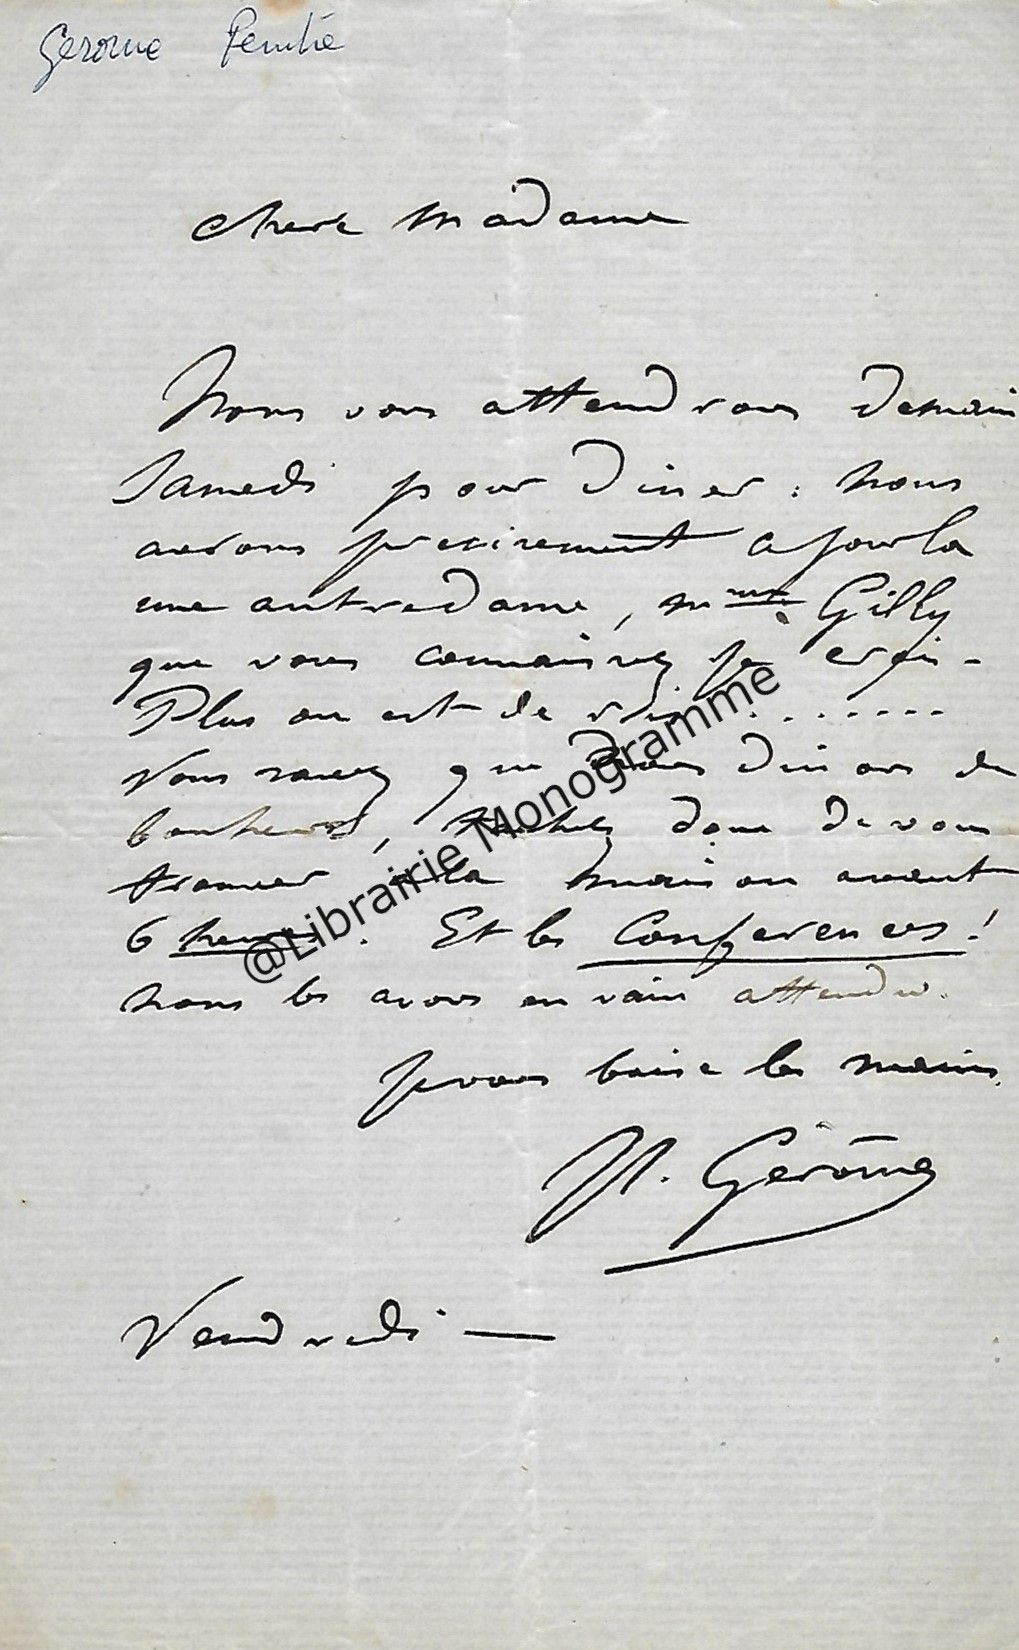 Gerome Peintre
Chere Madame
Nous vous attendrons demain
Samedi pour diner : nous
aurons precisement ce jour la
une autre dame, Mme Gilly
que vous connaissez je crois -
Plus on est de . . . . . . .
Vous savez que nous dinons de
bonheur, tachez donc de vous
trouver a la maison avant
6 heures. Et les Conferences !
nous les avons en vain attendu.
Je vous baise les mains.
Gérôme
Vendredi —
@Librairie Monogramme